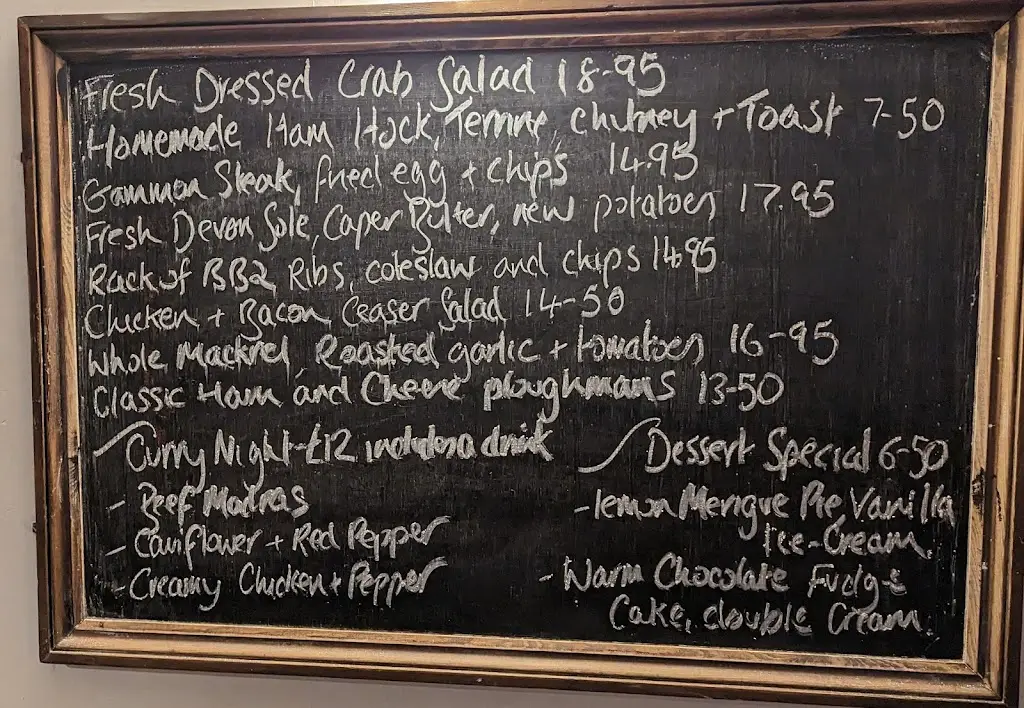 Fresh Dressed Crab Salad 18-95
Homemade Ham Hock, Terrine, chutney + Toast 7-50
Gammon Steak, fried egg + chips 14.95
Fresh Devon Sole, Caper Butter, new potatoes 17.95
Rack of BBQ Ribs, coleslaw and chips 14.95
Chicken + Bacon Ceaser Salad 14-50
Whole Mackrel Roasted garlic + tomatoes 16-95
Classic Ham and Cheese ploughmans 13-50
Curry Night-£12 includes a drink
- Beef Madras
- Cauiflower + Red Pepper
- Creamy Chicken + Pepper
Dessert Special 6-50
- lemon Merigue Pie, Vanilla
Ice-Cream.
- Warm Chocolate Fudge
Cake, double Cream.